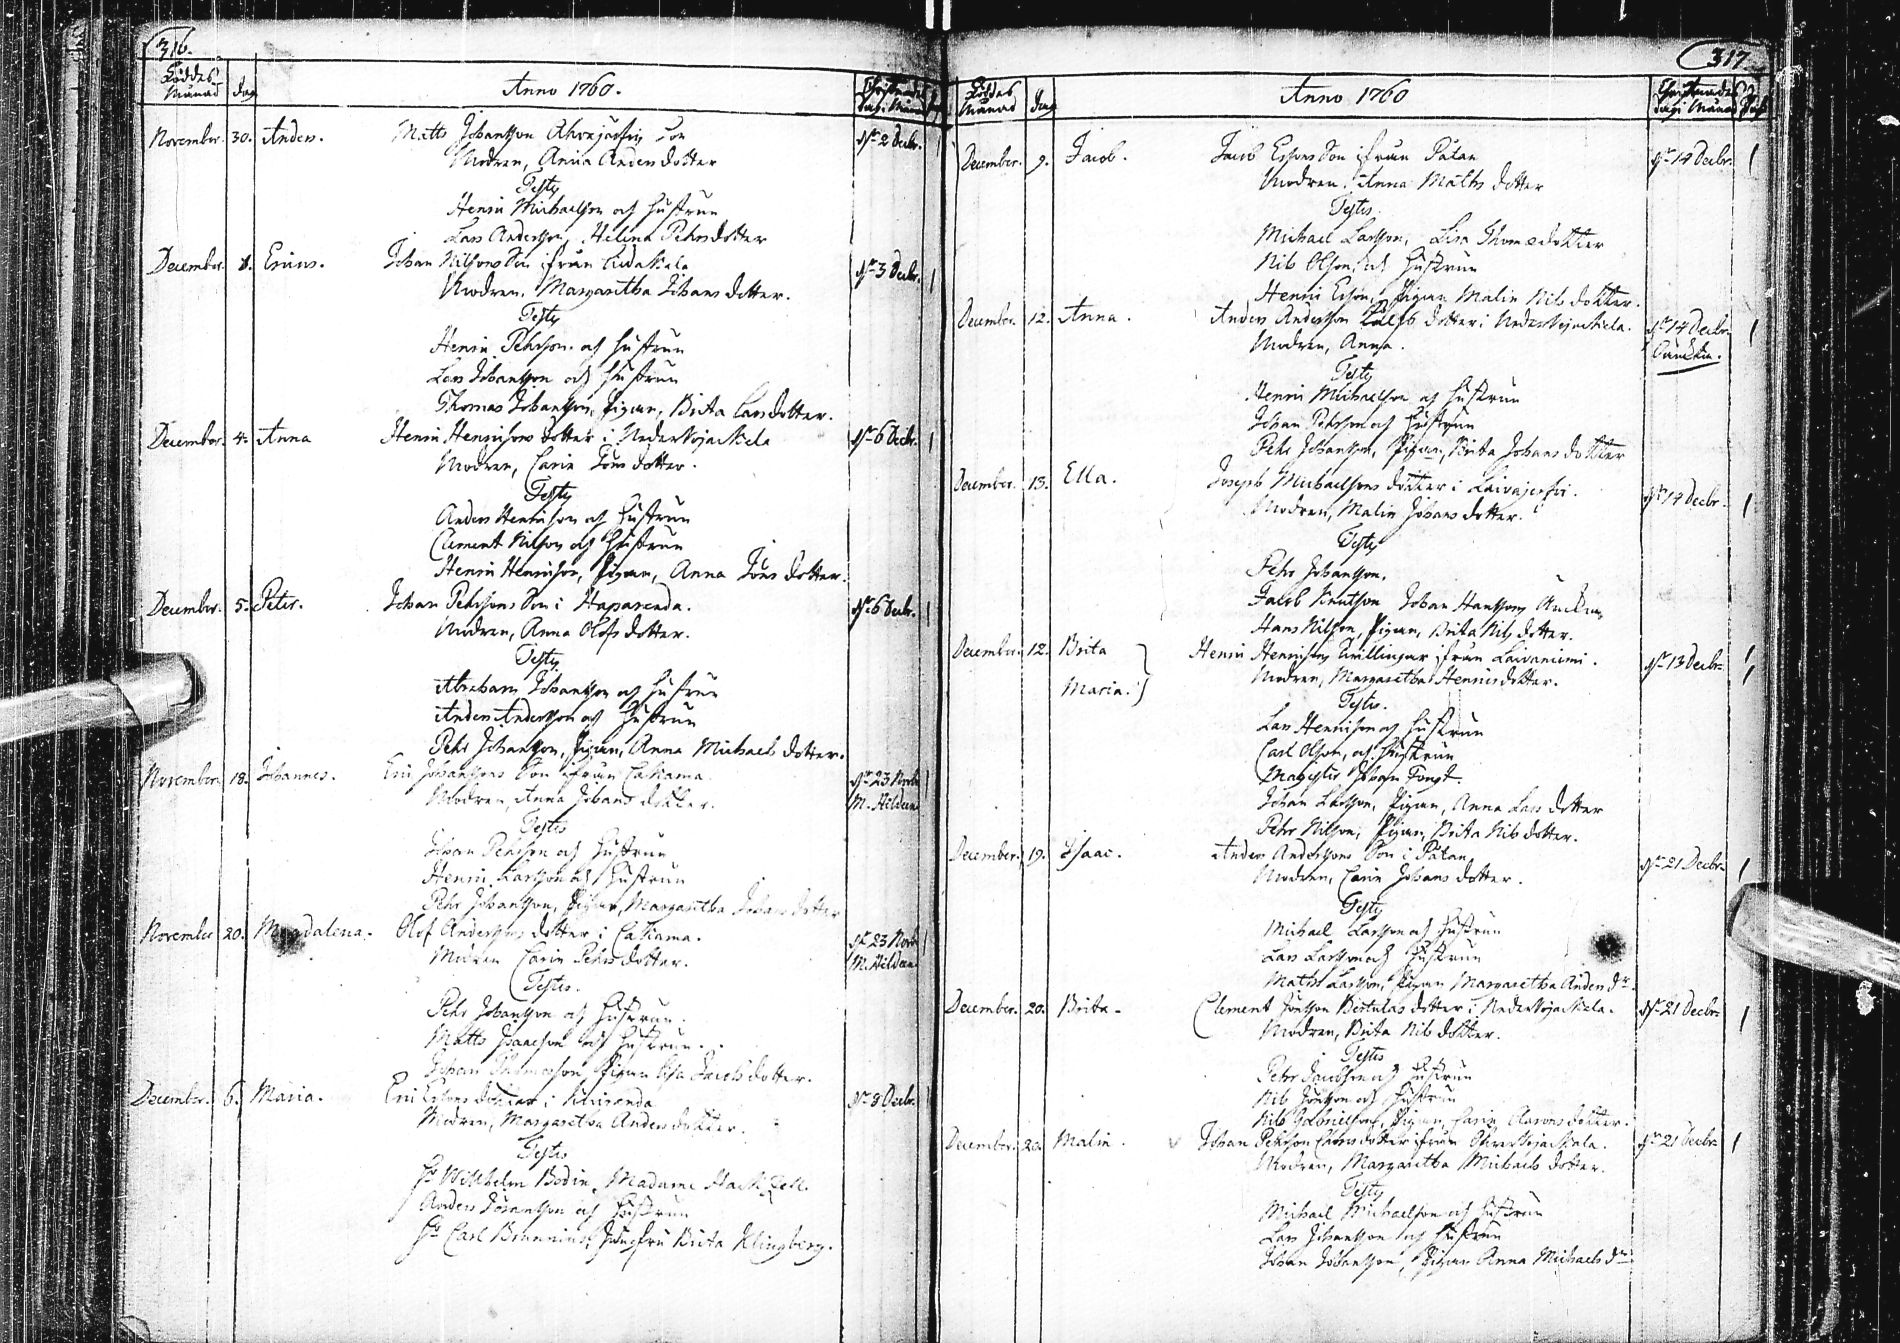 316.
Föddes Månad dag Anno 1760. Christnades dag i Månad
November. 30. Anders. Matts Johansson son d. 2 Decbr.
Modren, Anna Anders dotter
Testes
Henric Michaelsson och hustrun
Lars Andersson, Helena Pehrsdotter
December. 1. Ericus. Johan Nilssons Son ifrån d. 3 Decbr.
Modren, Margaretha Johans dotter.
Testes
Henric Pehrsson och hustrun
Lars Johansson och hustrun
Thomas Johansson, Pigan, Brita Larsdotter.
December. 4. Anna Henric Henricsons dotter i Nedervojackala d. 6 Decbr.
Modren, Carin Jöns dotter.
Testes
Anders Henricson och hustrun
Clement Nilsson och hustrun
Henric Henricson, Pigan, Anna Jöns dotter.
December. 5. Peter. Johan Pehrsons Son i Haparanda. d. 6 Decbr.
Modren, Anna Olofs dotter.
Testes
Abraham Johansson och hustrun
Anders Andersson och hustrun
Pehr Johansson, Pigan, Anna Michaels dotter.
November. 18. Johannes. Eric Johanssons Son ifrån Calkama d. 23 Novbr
Modren, Anna Johans dotter. M. Hildeen
Testes
Johan Persson och hustrun
Henric Larsson och hustrun
Pehr Johansson, Pigan, Margaretha Johans dotter
November 20. Magdalena. Olof Anderssons dotter i Calkama. d. 23 Novbr
Modren Carin Pehrs dotter. M. Hildeen
Testes.
Pehr Johansson och hustrun.
Matts Isaacson och hustrun.
Johan Thomasson, Pigan Lisa Jacobs dotter.
December. 6. Maria. Eric Erssons dotter i Kuivranda d. 8 Decbr.
Modren, Margaretha Anders dotter.
Testes
Hr Wilhelm Bodin, Madame Hackzell.
Anders Johansson och hustrun
Hr Carl Brunnius, Jungfru Brita Klingberg.
317
Föddes Månad dag Anno 1760 Christnades dag i Månad
December. 9. Jacob. Jacob Erssons Son ifrån Påtan d. 14 Decbr.
Modren, Anna Matts dotter
Testes
Michael Larsson, Lisa Thomædotter
Nils Olsson och hustrun
Henric Ersson, Pigan Malin Nils dotter.
December. 12. Anna. Anders Andersson dotter i Nedervojackala. d. 14 Decbr.
Modren, Anna.
Testes
Henric Michaelsson och hustrun
Johan Pehrsson och hustrun
Pehr Johansson, Pigan, Brita Johans dotter
December. 13. Ella. Joseph Michaelsons dotter i Laivajerfvi. d. 14 Decbr.
Modren, Malin Johans dotter.
Testes
Pehr Johansson.
Jacob Knutson Johan Hansson
Hans Nilsson, Pigan, Brita Nils dotter.
December. 12. Brita Henric Henricsons twillingar ifrån Laivaniemi. d. 13 Decbr.
Maria. Modren, Margaretha Henricsdotter.
Testes.
Lars Henricson och hustrun
Carl Olsson, och hustrun
Magister Johan Fougt.
Johan Larsson, Pigan, Anna Lars dotter
Pehr Nilsson, Pigan, Brita Nils dotter.
December. 19. Isaac. Anders Anderssons Son i Påtan d. 21 Decbr.
Modren, Carin Johans dotter.
Testes
Michael Larsson och hustrun
Lars Larsson och hustrun
Matts Larsson, Pigan Margaretha Anders dr.
December. 20. Brita. Clement Jönsson Bertulas dotter i Nedervojackala. d. 21 Decbr.
Modren, Brita Nils dotter.
Testes
Pehr Jacobson och hustrun
Nils Jönsson och hustrun
Nils Gabrielsson, Pigan, Carin Aarons dotter.
December. 20. Malin. Johan Pehrsson dotter ifrån Öfvervojackala. d. 21 Decbr
Modren, Margaretha Michaels dotter.
Testes
Michael Michaelsson och hustrun
Lars Johansson och hustrun
Johan Johansson, Pigan Anna Michaels dr.